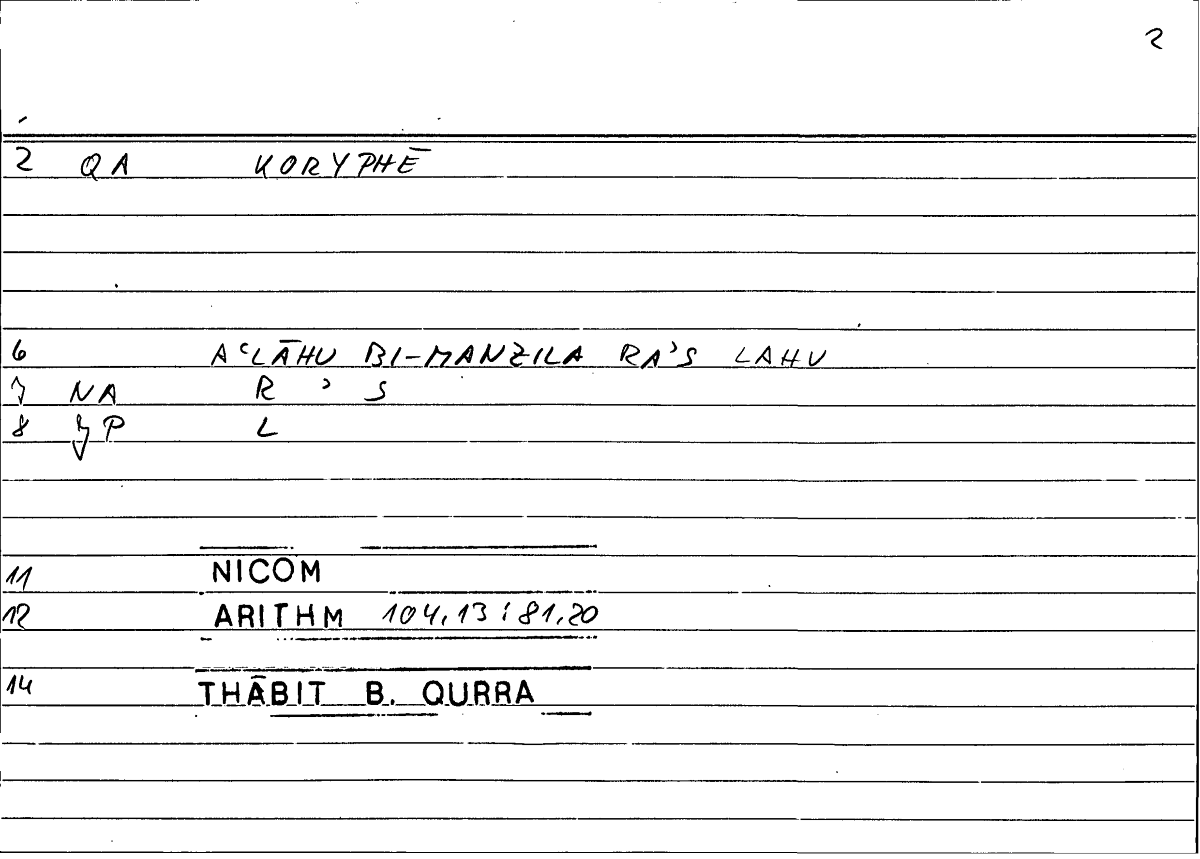 2
2 QA KORYPHĒ
6 AʿLĀHU BI-MANZILA RAʾS LAHU
7 NA R ʾ S
8 JP L
11 NICOM
12 ARITHM 104,13 : 81,20
14 THĀBIT B. QURRA